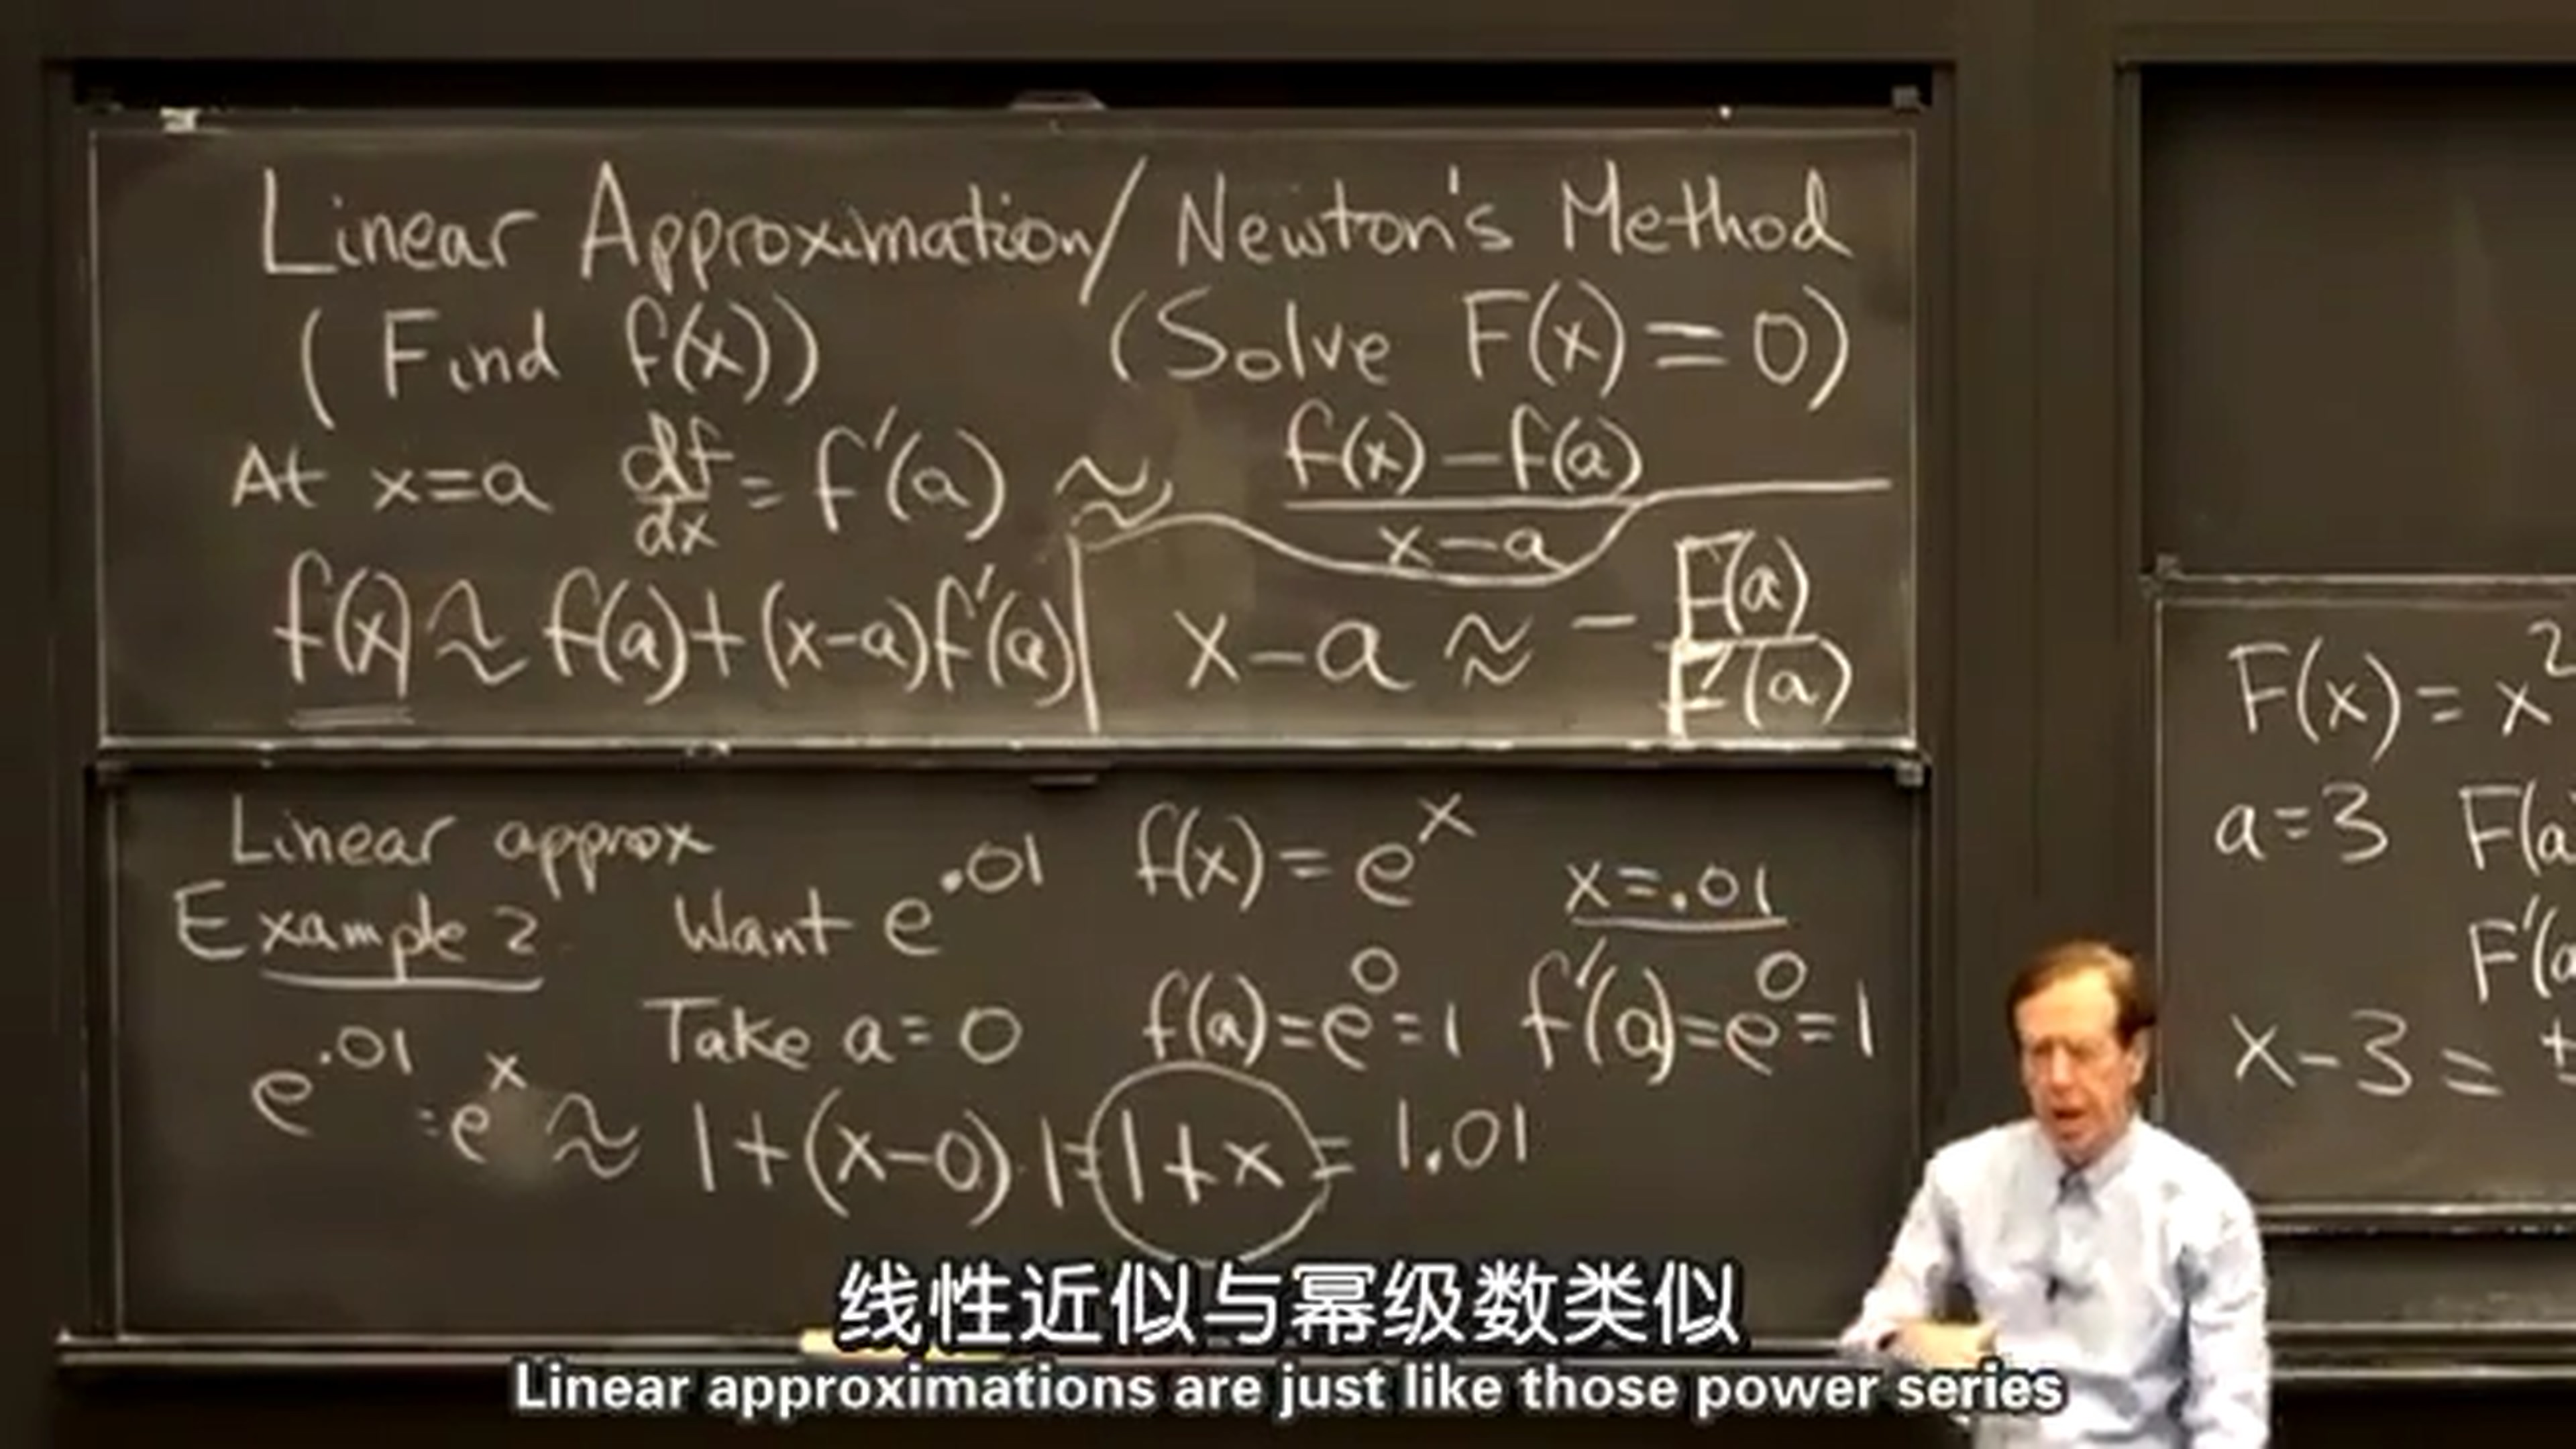 Linear Approximation/ Newton's Method
(Find f(x)) (Solve F(x)=0)
At x=a df/dx = f'(a) ≈ f(x)-f(a)/x-a
f(x) ≈ f(a)+(x-a)f'(a) x-a ≈ - F(a)/F'(a)
Linear approx f(x)=e^x
Example 2 Want e^.01 x=.01
Take a=0 f(a)=e^0=1 f'(a)=e^0=1
e^.01 =e^x ≈ 1+(x-0)·1=1+x=1.01
F(x)=x^2
a=3 F(a
F'(a
x-3=
线性近似与幂级数类似
Linear approximations are just like those power series